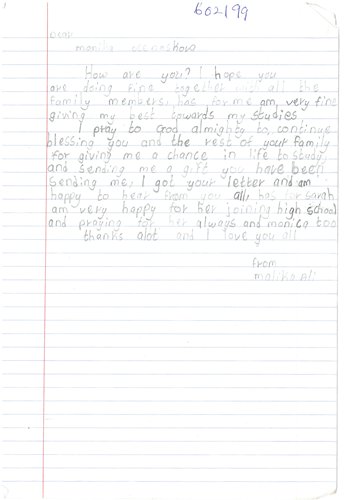 602199
Dear
monika
How are you? I hope you
are doing fine together with all the
family members. has for me am, very fine
giving my best towards my studies.
I pray to God almighty to, continue
blessing you and the rest of your family
for giving me a chance in life to study,
and sending me a gift you have been
sending me, I got your letter and am
happy to hear from you all, has for sarah
am very happy for her joining high school
and praying for her always and monica too
thanks alot and I love you all
from
Ali